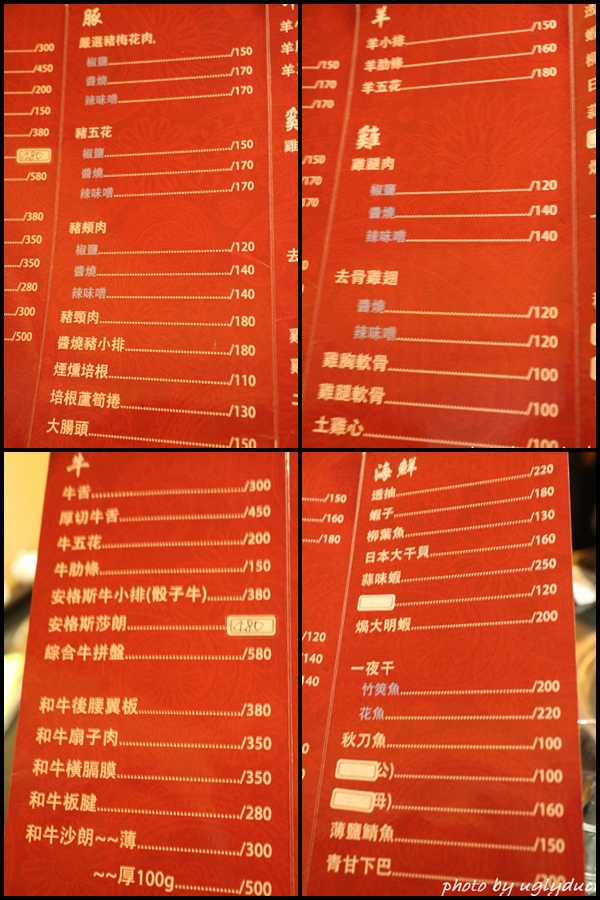 豚
嚴選豬梅花肉
椒鹽/150
醬燒/170
辣味噌/170
豬五花
椒鹽/150
醬燒/170
辣味噌/170
豬頰肉
椒鹽/120
醬燒/140
辣味噌/140
豬頸肉/180
醬燒豬小排/180
煙燻培根/110
培根蘆筍捲/130
大腸頭/150
/300
/450
/200
/150
/380
480
/580
/380
/350
/350
/280
/300
/500
羊
羊小排/150
羊肋條/160
羊五花/180
雞
雞腿肉
椒鹽/120
醬燒/140
辣味噌/140
去骨雞翅
醬燒/120
辣味噌/120
雞胸軟骨/100
雞腿軟骨/100
土雞心/100
/150
/170
/170
/150
/170
/170
牛
牛舌/300
厚切牛舌/450
牛五花/200
牛肋條/150
安格斯牛小排(骰子牛)/380
安格斯莎朗480
綜合牛拼盤/580
和牛後腰翼板/380
和牛扇子肉/350
和牛橫膈膜/350
和牛板腱/280
和牛沙朗~~薄/300
~~厚100g/500
海鮮
透抽/220
蝦子/180
柳葉魚/130
日本大干貝/160
蒜味蝦/250
/120
焗大明蝦/200
一夜干
竹筴魚/200
花魚/220
秋刀魚/100
公)/100
母)/160
薄鹽鯖魚/150
青甘下巴
/150
/160
/180
/120
/140
/140
photo by uglyduc